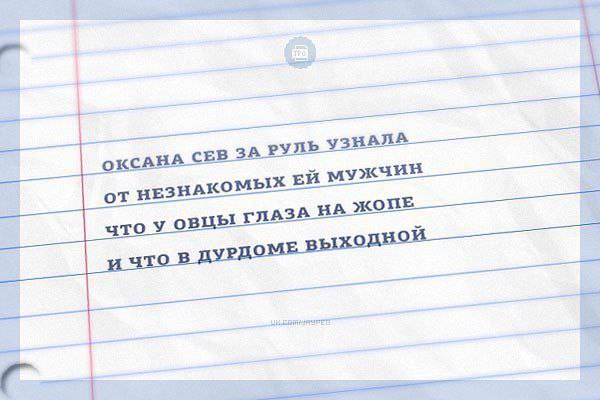 ОКСАНА СЕВ ЗА РУЛЬ УЗНАЛА
ОТ НЕЗНАКОМЫХ ЕЙ МУЖЧИН
ЧТО У ОВЦЫ ГЛАЗА НА ЖОПЕ
И ЧТО В ДУРДОМЕ ВЫХОДНОЙ
VK.COM/JAYPEG